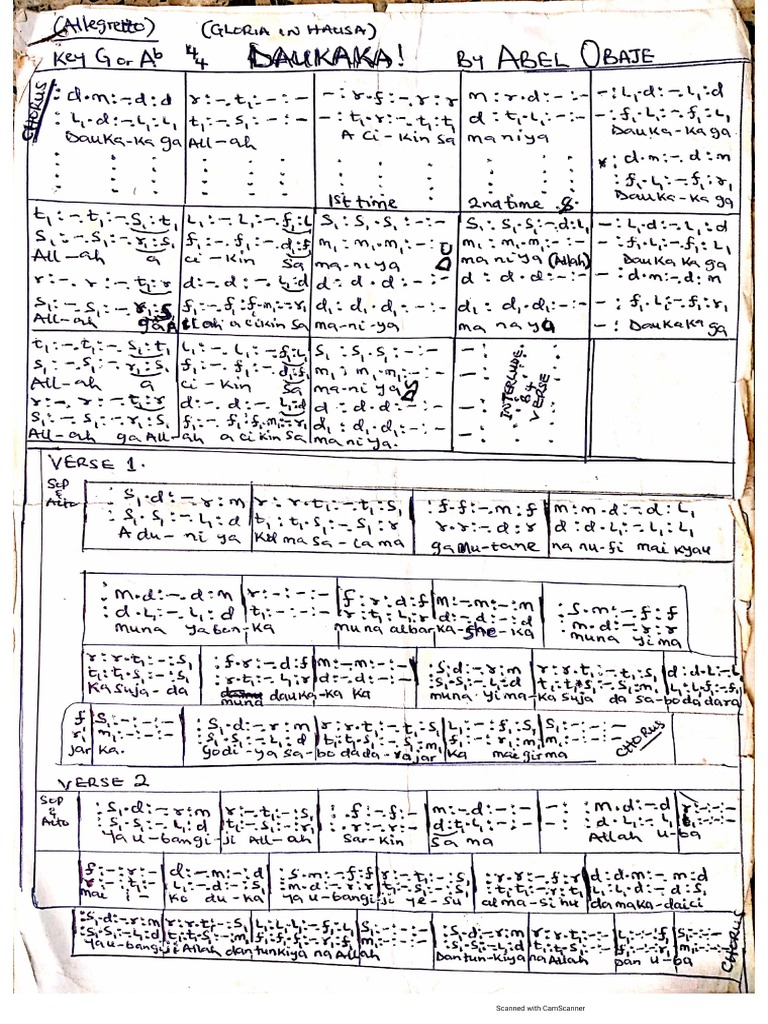 (Allegretto) (GLORIA IN HAUSA)
Key G or Ab 4/4 DAUKAKA! By ABEL OBAJE
CHORUS
: d.m:-.d:d | r:-.t₁:-:- | -:r.f:-.r:r | m:r.d:-:- | -:L₁.d:-.L₁:d
: L₁.d:-.L₁:L₁ | t₁:-.S₁:-:- | -:t₁.r:-.t₁:t₁ | d:t₁.L₁:-:- | -:f₁.L₁:-.f₁:L₁
Dauka-ka ga All-ah A ci-kin sa maniya Dauka-kaga
* : d.m:-.d:m
: f₁.L₁:-.f₁:r₁
1st time 2nd time .S. Dauka-ka ga
t₁:-.t₁:-.S₁:t₁ | L₁:-.L₁:-.f₁:L₁ | S₁:S₁.S₁:-:- | S₁.S₁.S₁:-.d:L₁ | -:L₁.d:-.L₁:d
S₁:-.S₁:-.r₁:S₁ | f₁:-.f₁:-.d₁:f₁ | m₁:m₁.m₁:-:- | m₁:m₁.m₁:-:- | -:f₁.L₁:-.f₁:L₁
All-ah a ci-kin Sa ma-niya ma niya (Allah) Dauka Kaga
r:-.r:-.t₁:r | d:-.d:-.L₁:d | d:d.d:-:- | d:d.d:-:- | -:d.m:-.d:m
S₁:-.S₁:-.r₁:S₁ | f₁:-.f₁:f₁.m₁:-.r₁ | d₁:d₁.d₁:-:- | d₁:d₁.d₁:-:- | -:f₁.L₁:-.f₁:r₁
All-ah ga A llah a cikin sa ma-ni-ya ma naya Daukaka ga
t₁:-.t₁:-.S₁:t₁ | L₁:-.L₁:-.f₁:L₁ | S₁:S₁.S₁:-:- | -:
S₁:-.S₁:-.r₁:S₁ | f₁:-.f₁:-.d₁:f₁ | m₁:m₁.m₁:-:- | -:
All-ah a ci-kin Sa ma-niya
INTERLUDE & 4 VERSE
r:-.r:-.t₁:r | d:-.d:-.L₁:d | d:d.d:-:- | -:
S₁:-.S₁:-.r₁:S₁ | f₁:-.f₁:f₁.m₁:-.r₁ | d₁:d₁.d₁:-:- | -:
All-ah ga All-ah a cikin sa maniya.
VERSE 1.
Sop & Alto
: S₁.d:-.r:m | r:r.t₁:-.t₁:S₁ | :f.f:-.m:f | m:m.d:-.d:L₁
: S₁.S₁:-.L₁:d | t₁:t₁.S₁:-.S₁:r | r.r:-.d:r | d:d.L₁:-.L₁:L₁
A du-ni ya Kumasa-lama gamu-tane nanu-fi mai kyau
: m.d:-.d:m | r:-:-:- | f:r:d:f | m:-.m:-:m | :S.m:-.f:f
: d.L₁:-.L₁:d | t₁:-:-:- | r:t₁:L₁:r | d:-.d:-:d | :m.d:-.r:r
muna yaban-ka muna albarka-she-ka muna yima
r:r.t₁:-:S₁ | :f.r:-.d:f | m:-.m:-:- | :S.d:-.r:m | r:r.t₁:-.t₁:S₁ | d:d.L₁:-.L₁
t₁:t₁.S₁:-:S₁ | :r.t₁:-.L₁:r | d:-.d:-:- | :S₁.S₁:-.L₁:d | t₁:t₁.S₁:-.S₁:m₁ | L₁:L₁.f₁:-.f₁
Ka suja-da muna dauka-ka ka muna yima-ka suja da sa-bodadara
f | S₁:-:-:- | :S₁.d:-.r:m | r:r.t₁:-.t₁:S₁ | L₁:-:f₁:S₁ | S₁:-:-:-
r₁ | m₁:-:-:- | :S₁.S₁:-.L₁:d | t₁:t₁.S₁:-.S₁:m₁ | f₁:-:r₁:m₁ | m₁:-:-:-
jar ka. godi-ya sa-bo dada-rajar ka mai girma CHORUS
VERSE 2
Sop & Alto
: S₁.d:-.r:m | r:-.t₁:-:S₁ | :f.f:-f:- | m:-.d:-:- | -: m.d:-.d | r:-:-:-
: S₁.S₁:-.L₁:d | t₁:-.S₁:-:S₁ | :r.r:-r:- | d:t₁.L₁:-:- | -: d.L₁:-.L₁ | t₁:-:-:-
Yau-bangi-ji All-ah Sar-kin Sa ma Allah u-ba
f:-:-:r | d:-.m:-:d | :S.m:-.f:f | r:-.t₁:-:S₁ | :r.r:-.f:f | d:d.m:-.m:d
r:-:-:t₁ | L₁:-.d:-:S₁ | :m.d:-.r:r | t₁:-.S₁:-:S₁ | :t₁.t₁:-.r:t₁ | L₁:L₁.d:-.d:S₁
mai i- ko du-ka Yau-bangi ji ye-su almasihu damaka-daici
:S.d:-.r:m | r:r.t₁:-.S₁ | L₁:L₁.L₁:-.f₁:f₁ | S₁:-:-:- | :S.d:-.r:m | r:r.t₁:-.S₁ | L₁:-:-:f₁ | S₁:-:-:-
:S₁.S₁:-.L₁:d | t₁:t₁.S₁:-.m₁ | f₁:f₁.f₁:-.r₁:f₁ | m₁:-:-:- | :S₁.S₁:-.L₁:d | t₁:t₁.S₁:-.S₁ | f₁:-:-:r₁ | m₁:-:-:-
Yau-bangiji Allah dan tunkiya na Allah Dantun-kiya na Allah pan u-ba
CHORUS
Scanned with CamScanner